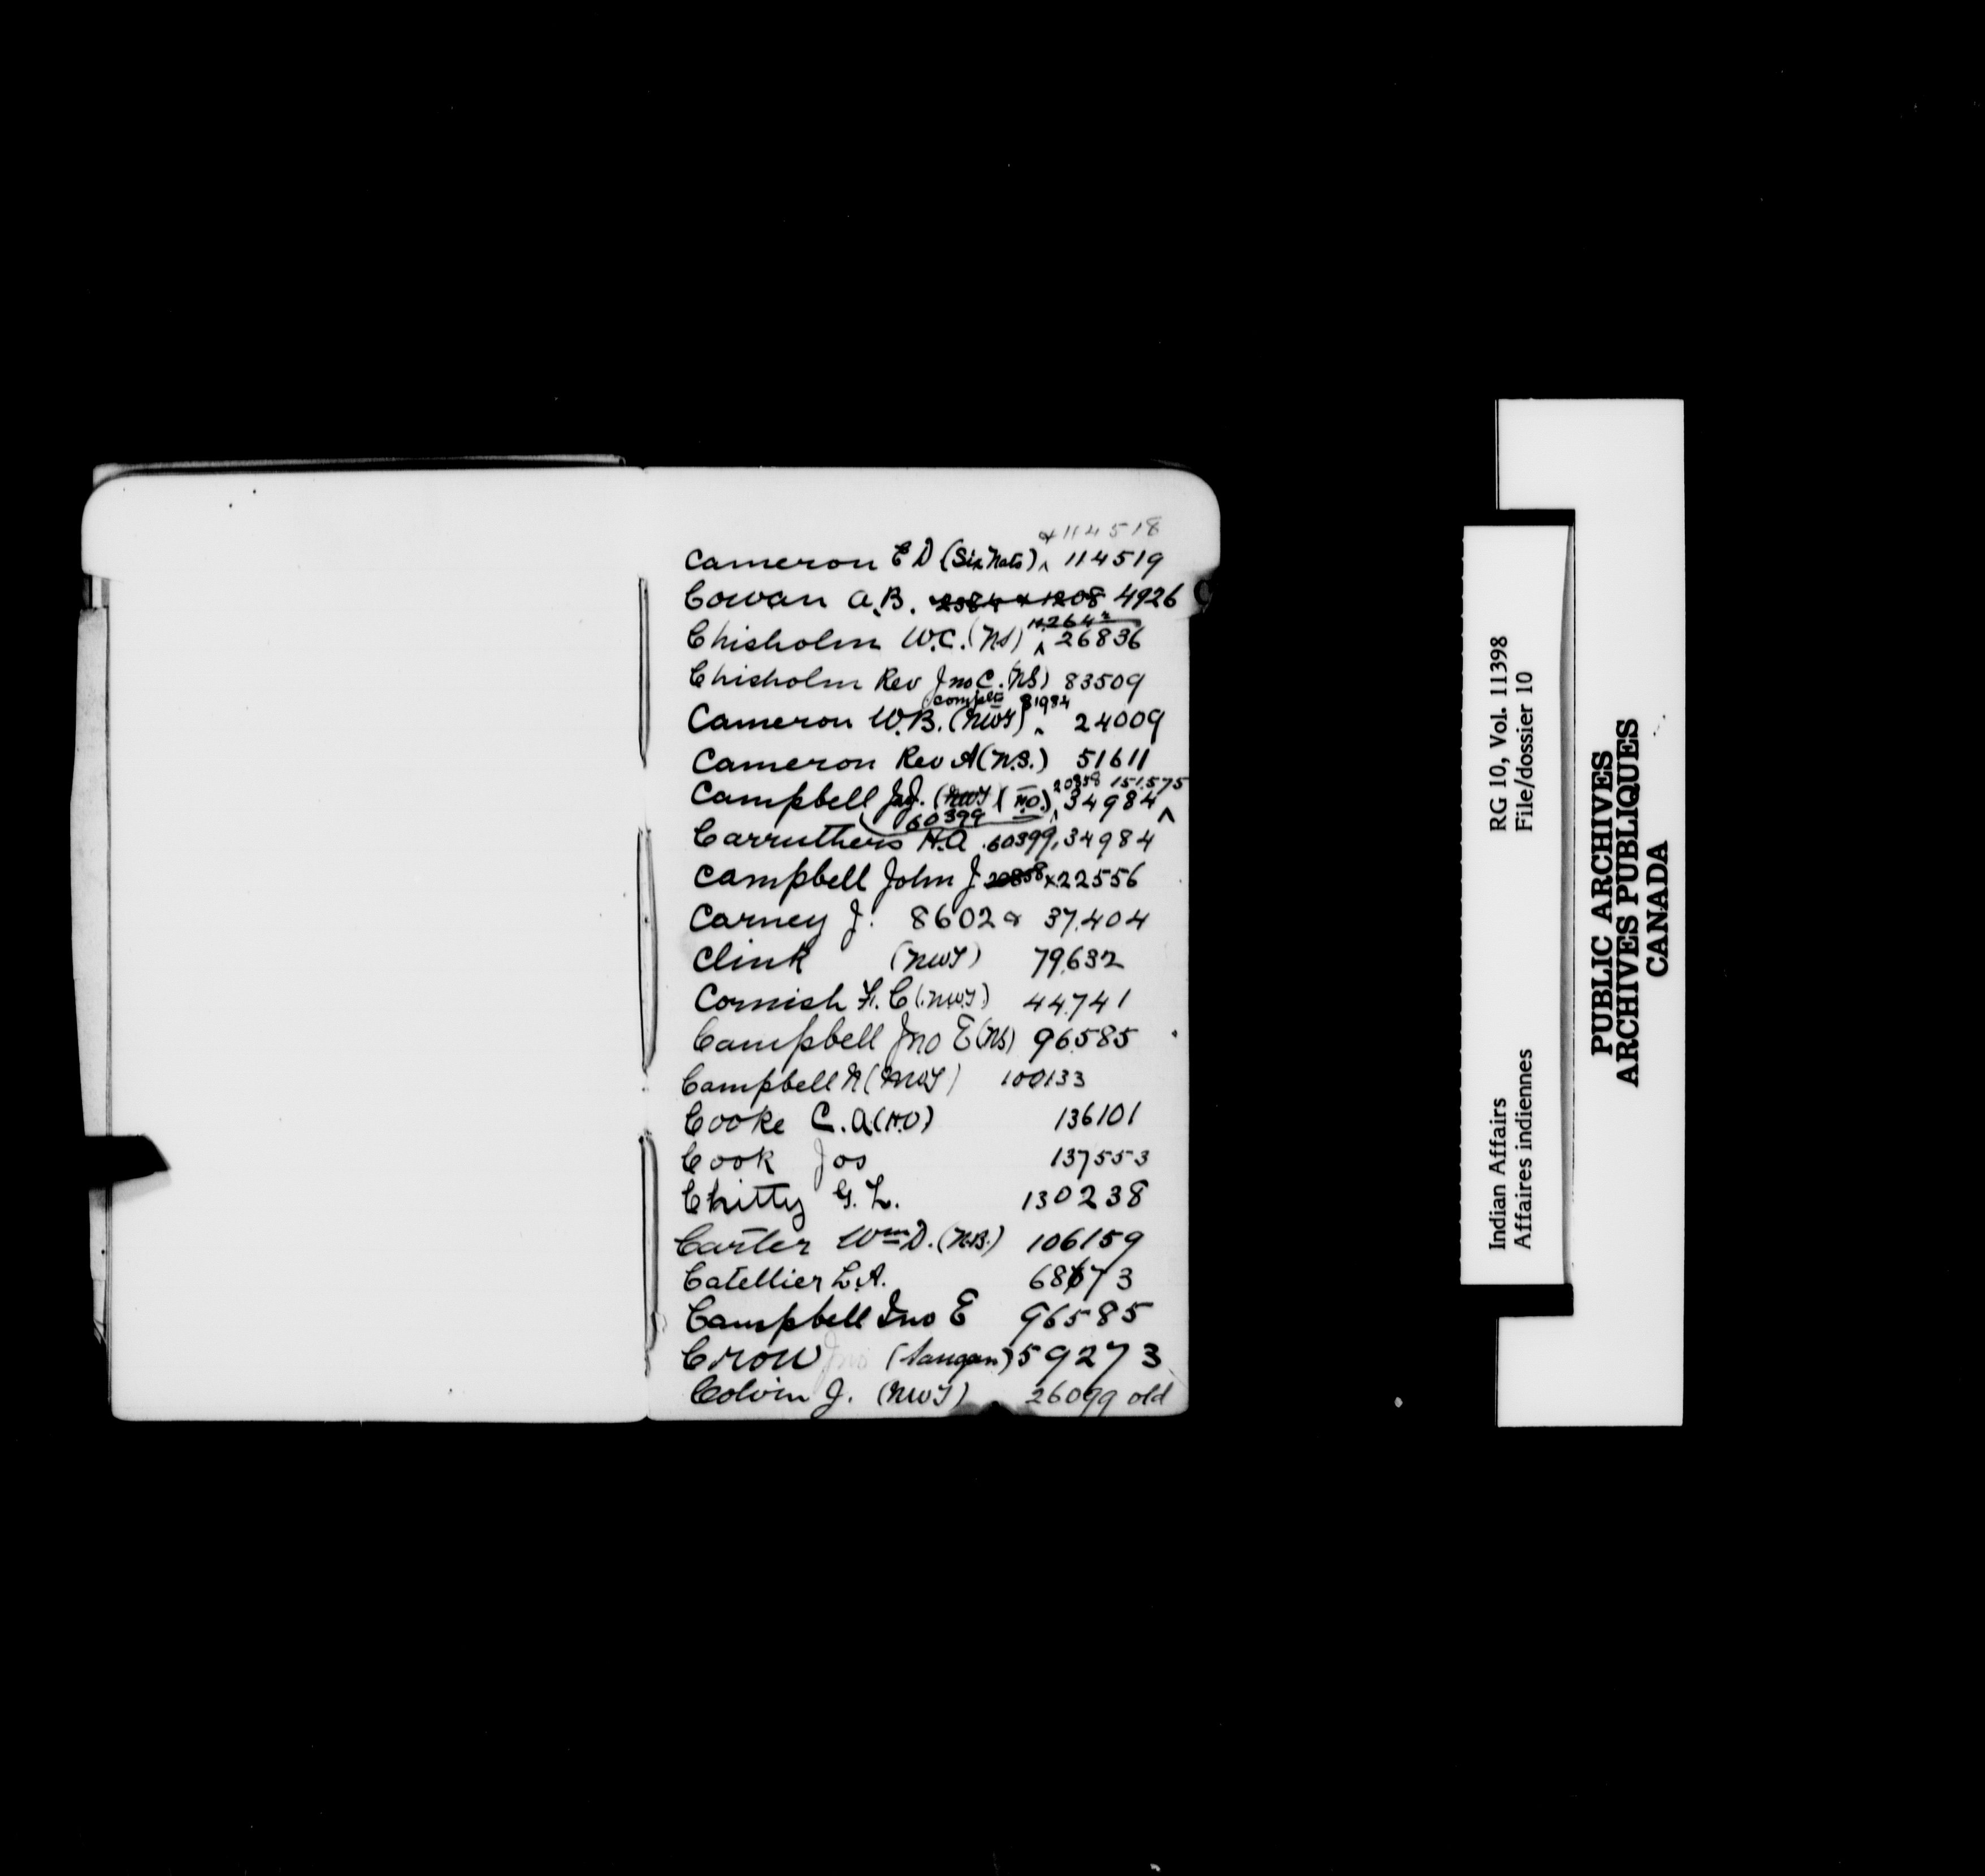 & 114518
Cameron E D (Six Nats) ^ 114519
Cowan A.B. 2384 & 1208 4926
Chisholm W.C. (NS) ^ 26836
Chisholm Rev Jno C. (NS) 83509
(complts 81984
Cameron W.B. (NWT) ^ 24009
Cameron Rev A (N.S.) 51611
20858 151,575
Campbell J.J. (NWT) (H.O.) ^ 34984 ^
60399
Carruthers H.A. 60399, 34984
Campbell John J 20858 & 22556
Carney J. 8602 & 37,404
Clink (NWT) 79,632
Cornish F. C (N.W.T.) 44,741
Campbell Jno E (NS) 96,585
Campbell N (NWT) 100133
Cooke C. A (H.O) 136101
Cook Jos 137553
Chitty G. L. 130238
Carter Wm D. (N.B.) 106159
Catellier L.A. 68673
Campbell Jno E 96585
Crow Jno (Saugeen) 59273
Colvin J. (NWT) 26099 old
Indian Affairs RG 10, Vol. 11398
Affaires indiennes File/dossier 10
PUBLIC ARCHIVES
ARCHIVES PUBLIQUES
CANADA